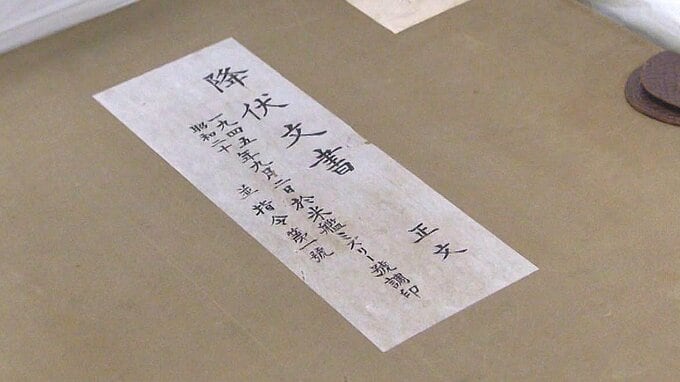 降伏文書　正文
一九四五年九月二日於米艦ミズリー號調印
昭和二十　並指令第一號